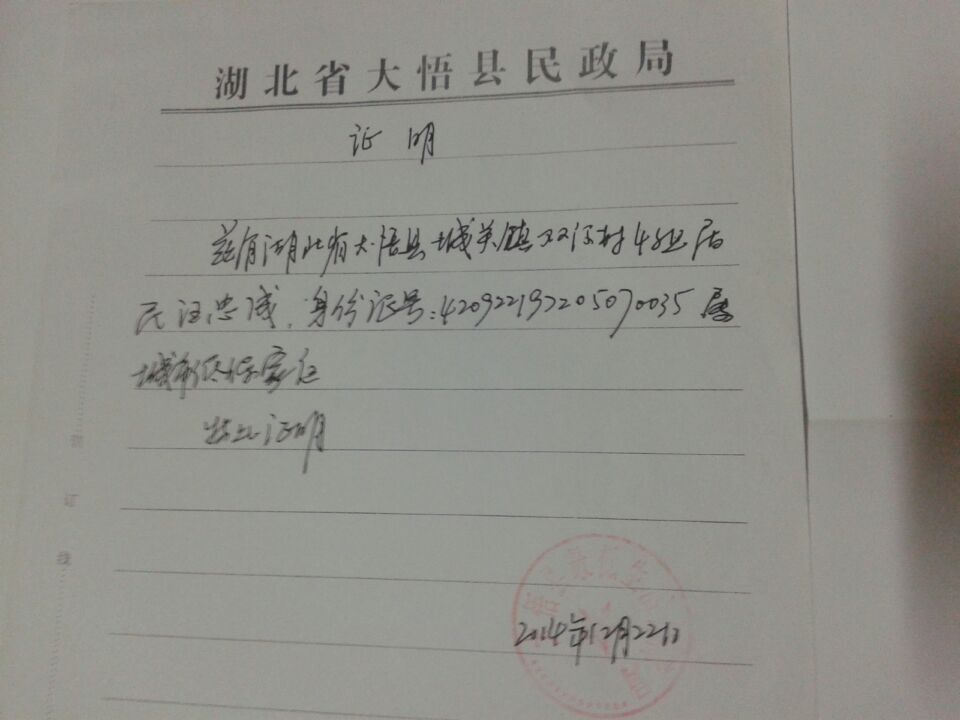 湖北省大悟县民政局
证明
兹有湖北省大悟县城关镇双河村4组居
民汪忠诚，身份证号：420922197205070035属
城市低保家庭
特此证明
2014年12月22日
装
订
线